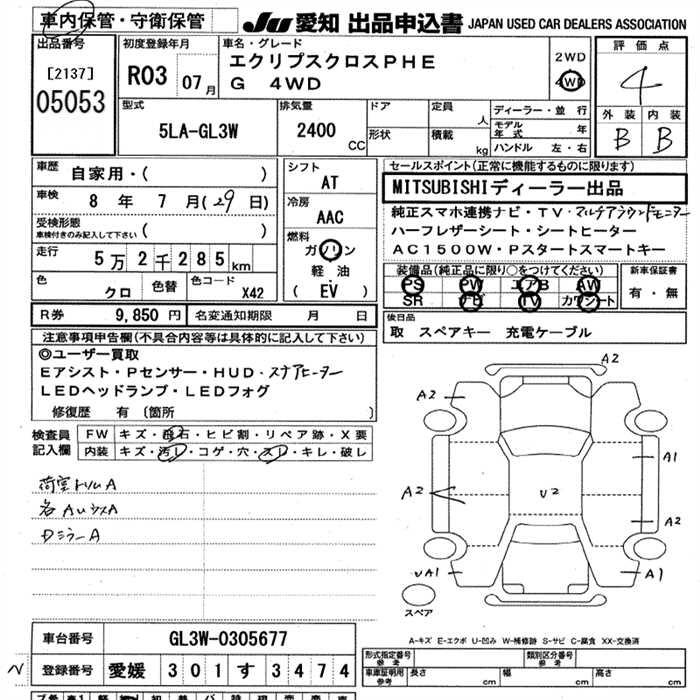 車内保管・守衛保管
JU 愛知 出品申込書 JAPAN USED CAR DEALERS ASSOCIATION
出品番号 初度登録年月 車名・グレード 評価点
[2137] R03 07月 エクリプスクロスPHE 2WD
05053 G 4WD 4WD 4
型式 排気量 ドア 定員 人 ディーラー・並行 外装 内装
5LA-GL3W 2400 CC 形状 積載 kg モデル年式 年 B B
ハンドル 左・右
車歴 自家用・( ) シフト セールスポイント(正常に機能するものに限ります)
AT MITSUBISHIディーラー出品
車検 8年 7月(29日) 冷房 純正スマホ連携ナビ・TV・マルチアラウンドモニター
受検形態 AAC ハーフレザーシート・シートヒーター
車検付きのみ記入して下さい ( ) 燃料 AC1500W・Pスタートスマートキー
走行 5万2千285km ガソリン 装備品(純正品に限り○をつけてください) 新車保証書
色 クロ 色替 色コード X42 軽油 PS PW エアB AW 有・無
(EV) SR ナビ TV カワシート
R券 9,850円 名変通知期限 月 日 後日品
取 スペアキー 充電ケーブル
注意事項申告欄(不具合内容等は具体的に記入して下さい)
◎ユーザー買取
Eアシスト・Pセンサー・HUD・ステアヒーター
LEDヘッドランプ・LEDフォグ
修復歴 有 〔箇所 〕
検査員 FW キズ・飛石・ヒビ割・リペア跡・X要
記入欄 内装 キズ・汚レ・コゲ・穴・スレ・キレ・破レ
荷室トリムA
Dミラー A
A2
A2
A1
A2
U2
A2
UA1
A1
スペア
車台番号 GL3W-0305677
A-キズ E-エクボ U-凹み W-補修跡 S-サビ C-腐食 XX-交換済
登録番号 愛媛 301 す 3474
型式指定番号 参考 類別区分番号 参考
車庫証明用 参考 長さ cm 幅 cm 高さ cm